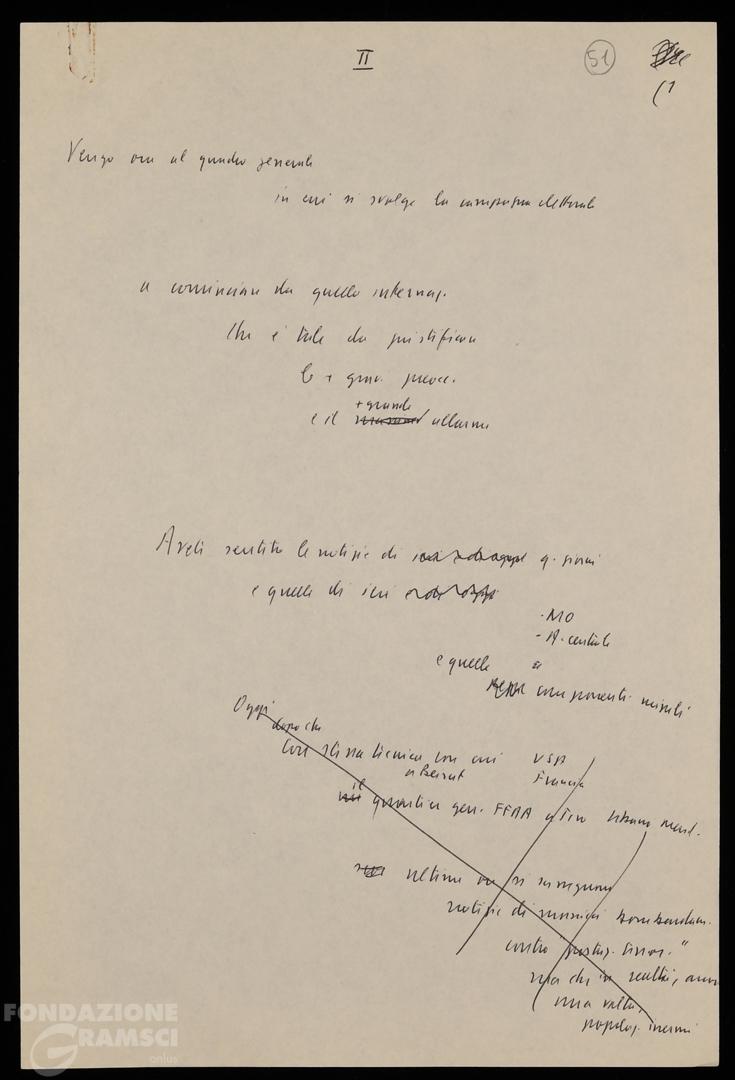 II
51
(1
Vengo ora al quadro generale
in cui si svolge la campagna elettorale
a cominciare da quello internaz.
Che è tale da giustificare
le + gravi preocc.
+ grande
e il allarme
Avete sentito le notizie di q. giorni
e quelle di ieri
- MO
- A. centrale
e quelle
componenti missili
Oggi
dopo che
Con stessa tecnica con cui USA
a Beirut Francia
il
quartier gen. FFAA a Tiro
ultime ore si susseguono
notizie di massicci bombardam.
contro "postaz. terror."
ma che in realtà, ancora
una volta,
popolaz. inermi
FONDAZIONE
GRAMSCI
onlus